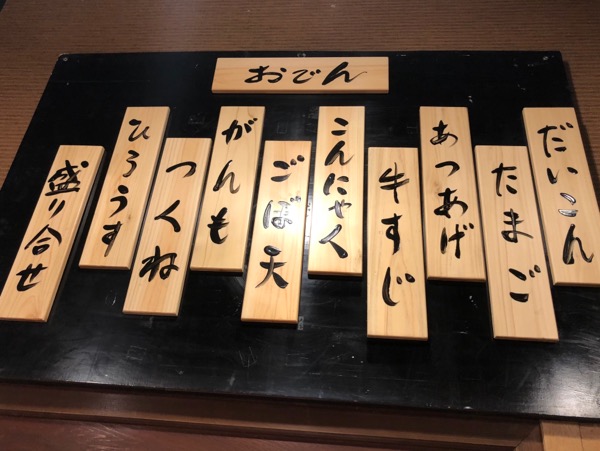 おでん
だいこん
たまご
あつあげ
牛すじ
こんにゃく
ごぼ天
がんも
つくね
ひろうす
盛り合せ